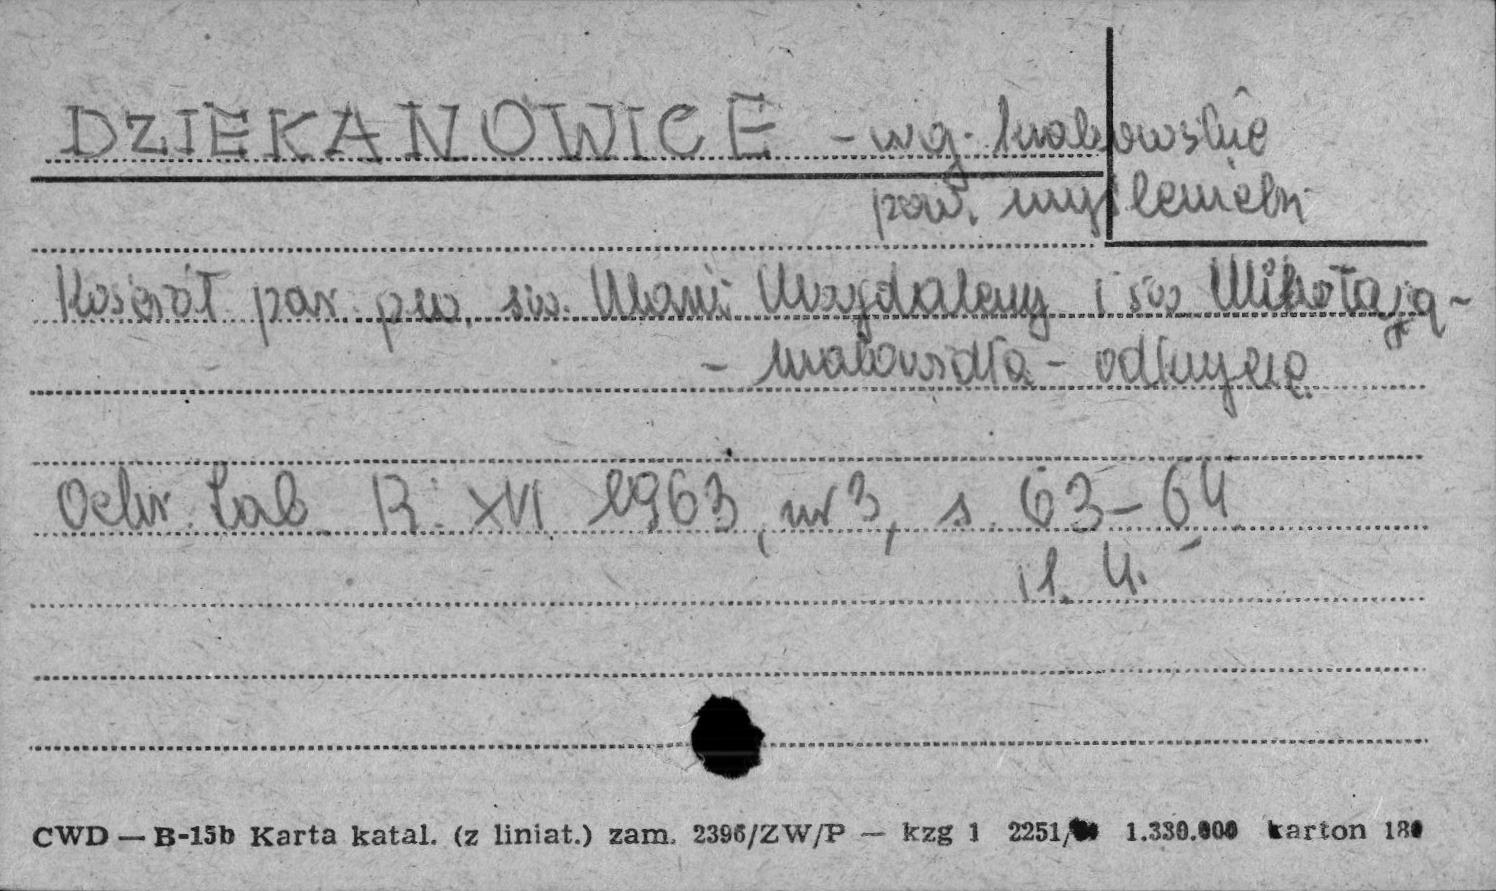 DZIEKANOWICE – woj. krakowskie
pow. myślenicki
Kościół par. pw. św. Marii Magdaleny i św. Mikołaja –
– krakowskie – odkrycie
Ochr. Zab. R. XVI 1963, nr 3, s. 63–64
il. 4.
CWD — B-15b Karta katal. (z liniat.) zam. 2396/ZW/P — kzg 1 2251/ 1.330.000 karton 180